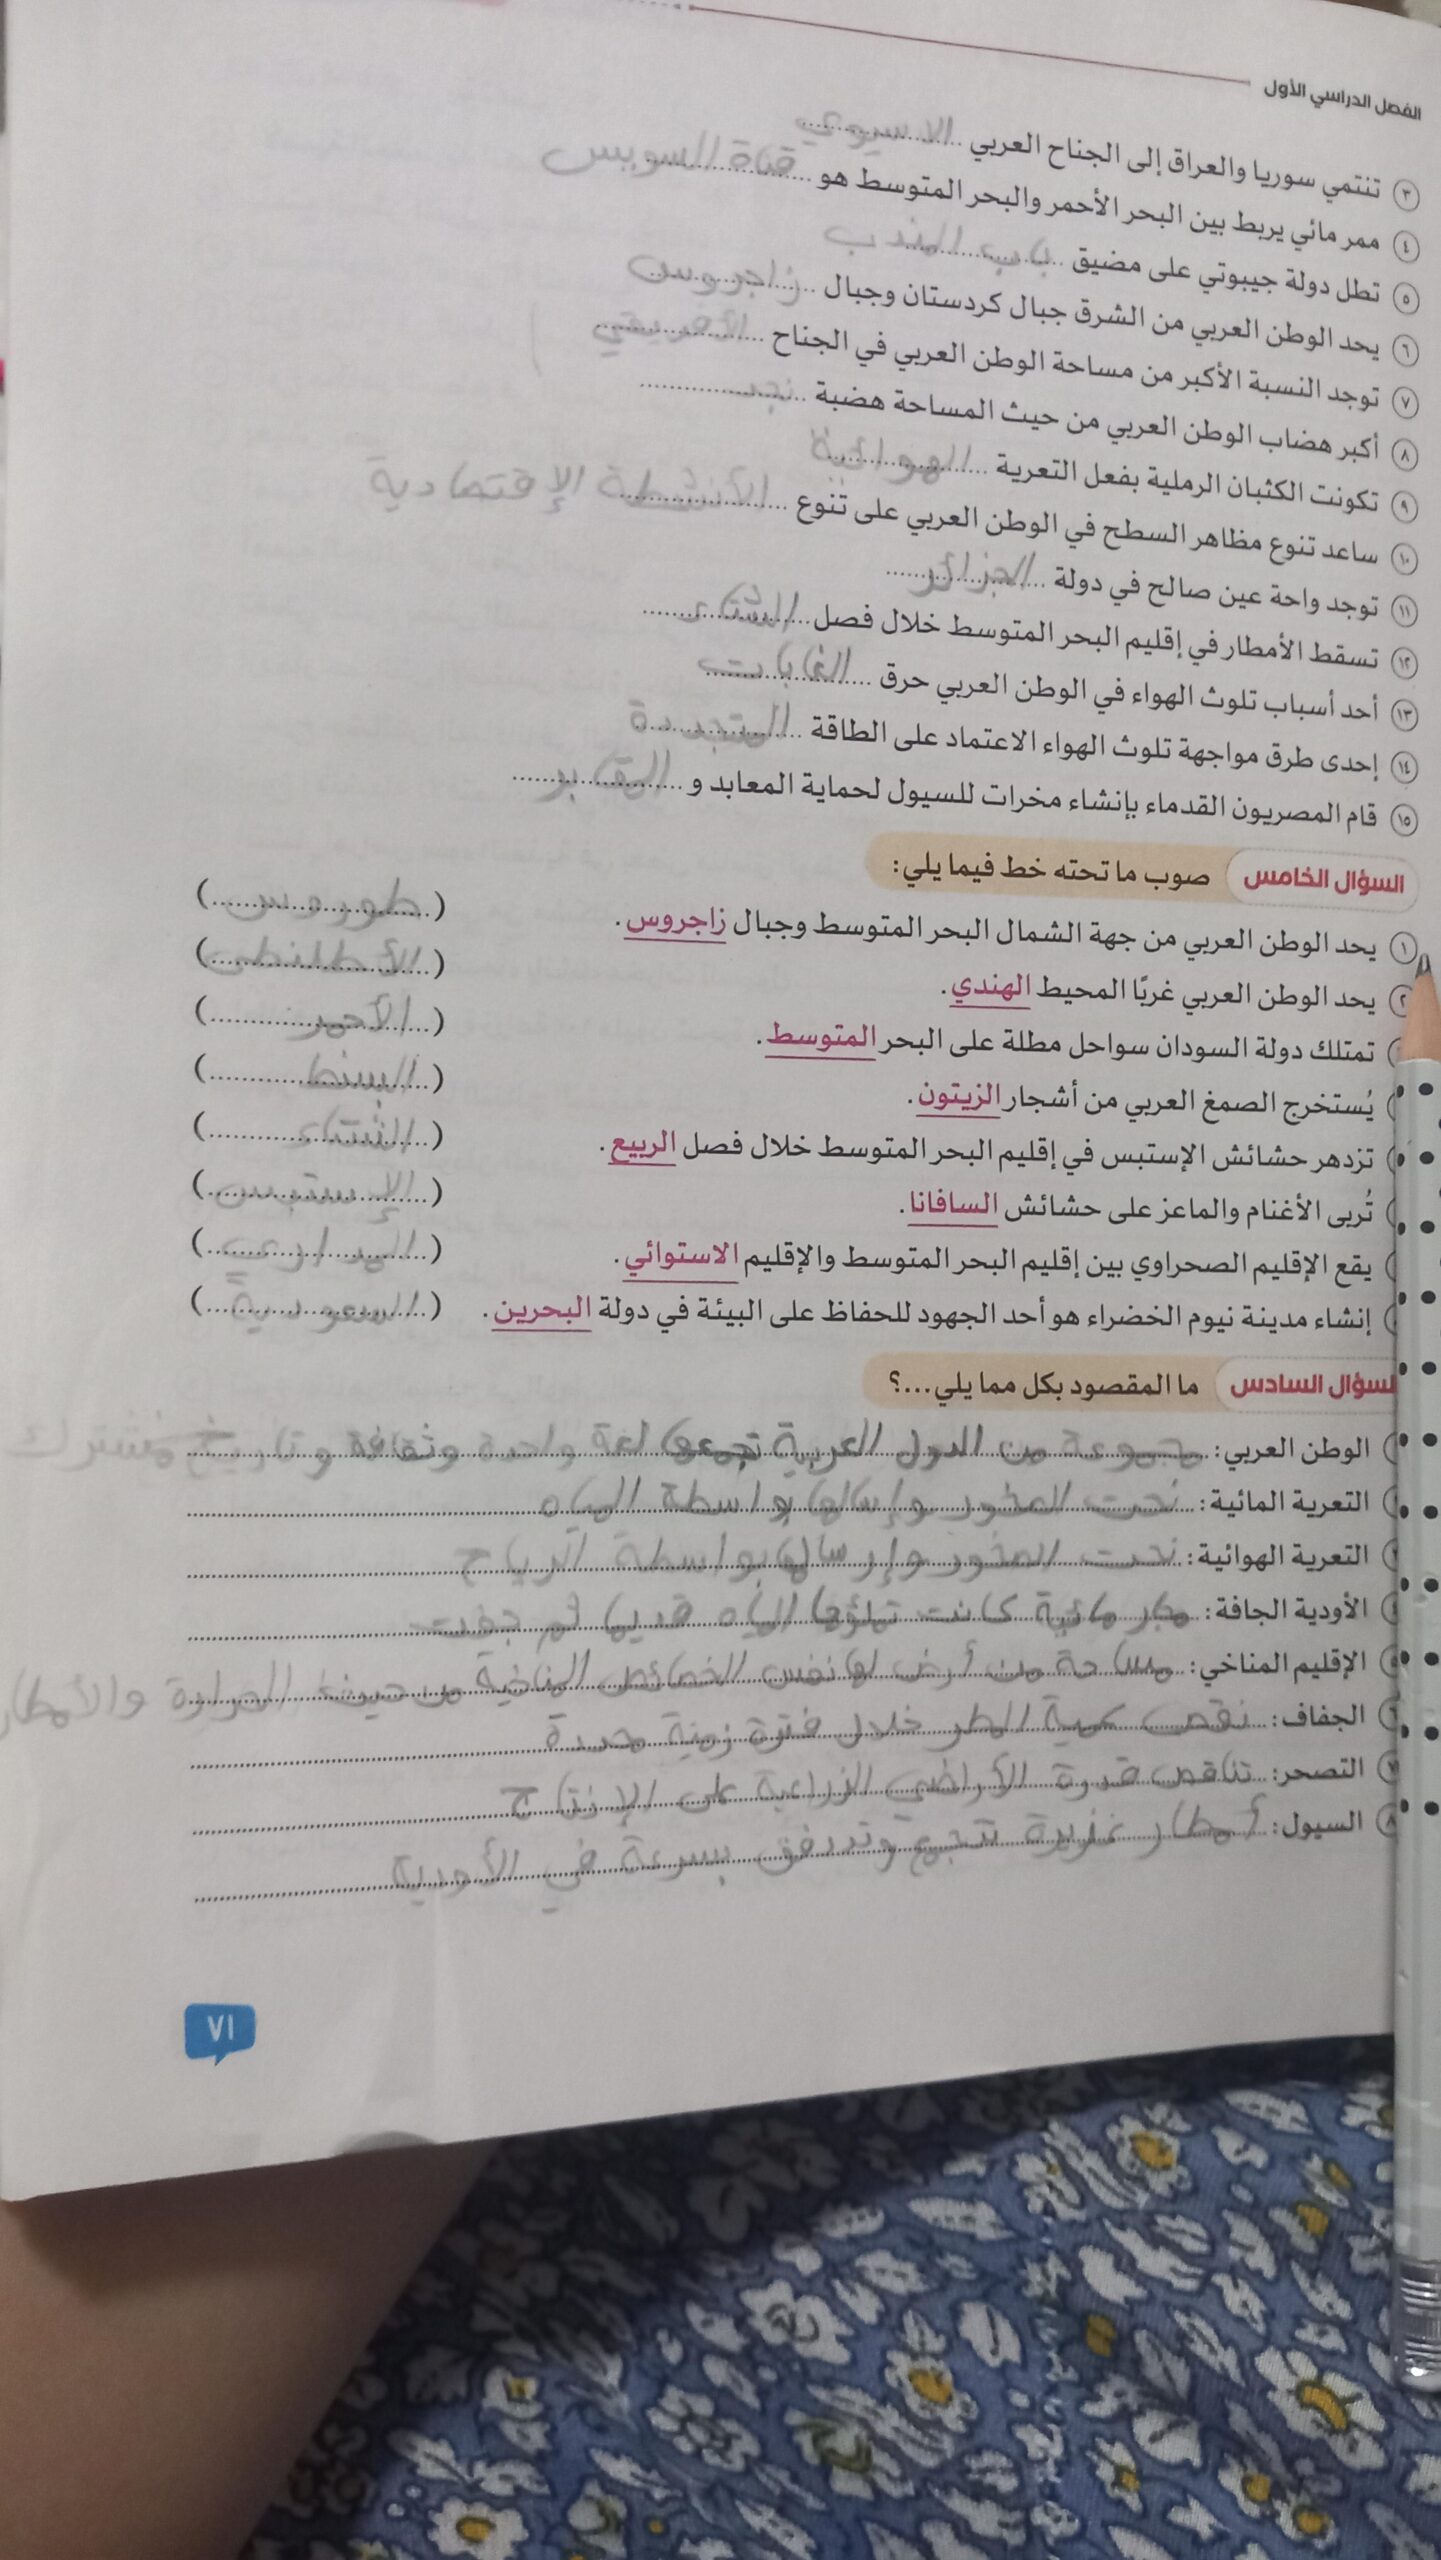 الفصل الدراسي الأول
٣ تنتمي سوريا والعراق إلى الجناح العربي الاسيوي
٤ ممر مائي يربط بين البحر الأحمر والبحر المتوسط هو قناة السويس
٥ تطل دولة جيبوتي على مضيق باب المندب
٦ يحد الوطن العربي من الشرق جبال كردستان وجبال زاجروس
٧ توجد النسبة الأكبر من مساحة الوطن العربي في الجناح الأفريقي
٨ أكبر هضاب الوطن العربي من حيث المساحة هضبة نجد
٩ تكونت الكثبان الرملية بفعل التعرية الهوائية
١٠ ساعد تنوع مظاهر السطح في الوطن العربي على تنوع الأنشطة الإقتصادية
١١ توجد واحة عين صالح في دولة الجزائر
١٢ تسقط الأمطار في إقليم البحر المتوسط خلال فصل الشتاء
١٣ أحد أسباب تلوث الهواء في الوطن العربي حرق الغابات
١٤ إحدى طرق مواجهة تلوث الهواء الاعتماد على الطاقة المتجددة
١٥ قام المصريون القدماء بإنشاء مخرات للسيول لحماية المعابد و
السؤال الخامس صوب ما تحته خط فيما يلي:
١ يحد الوطن العربي من جهة الشمال البحر المتوسط وجبال زاجروس. (طوروس)
٢ يحد الوطن العربي غربًا المحيط الهندي. (الأطلنطي)
تمتلك دولة السودان سواحل مطلة على البحر المتوسط. (الأحمر)
يُستخرج الصمغ العربي من أشجار الزيتون. (السنط)
تزدهر حشائش الإستبس في إقليم البحر المتوسط خلال فصل الربيع. (الشتاء)
تُربى الأغنام والماعز على حشائش السافانا. (الإستبس)
يقع الإقليم الصحراوي بين إقليم البحر المتوسط والإقليم الاستوائي. (المداري)
إنشاء مدينة نيوم الخضراء هو أحد الجهود للحفاظ على البيئة في دولة البحرين. (السعودية)
السؤال السادس ما المقصود بكل مما يلي...؟
الوطن العربي: مجموعة من الدول العربية تجمعها لغة واحدة وثقافة وتاريخ مشترك
التعرية المائية: نحت الصخور وإرسالها بواسطة المياه
التعرية الهوائية: نحت الصخور وإرسالها بواسطة الرياح
الأودية الجافة: مجار مائية كانت تملؤها المياه قديما ثم جفت
٥ الإقليم المناخي: مساحة من أرض لها نفس الخصائص المناخية من حيث الحرارة والأمطار
٦ الجفاف: نقص كمية المطر خلال فترة زمنية محددة
٧ التصحر: تناقص قدرة الأراضي الزراعية على الإنتاج
٨ السيول: أمطار غزيرة تتجمع وتتدفق بسرعة في الأودية
٧١